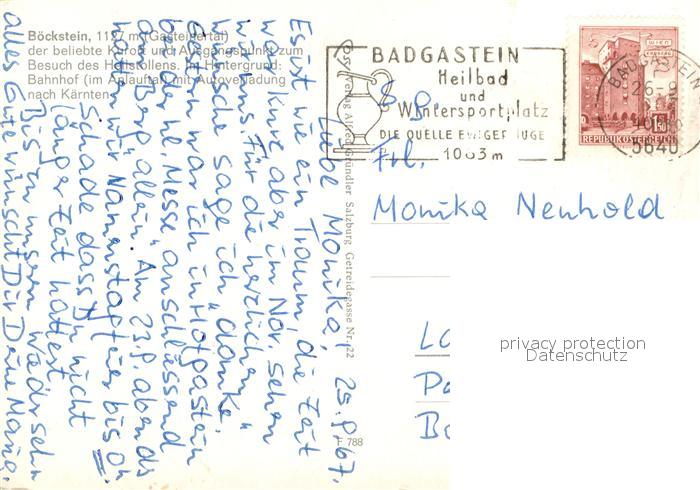 Böckstein, 1127 m (Gasteinertal)
der beliebte Kurort und Ausgangspunkt zum
Besuch des Heilstollens. Im Hintergrund:
Bahnhof (im Anlauftal) mit Autoverladung
nach Kärnten
BADGASTEIN
Heilbad
und
Wintersportplatz
DIE QUELLE EWIGER JUGEND
1083 m
WIEN
1.50
REPUBLIK ÖSTERREICH
BADGASTEIN
26-9
5640
Frl.
Monika Neuhold
privacy protection
Datenschutz
F 788
Verlag Alfred Gründler Salzburg Getreidegasse Nr. 22
Liebe Monika! 25.9.67.
Es ist wie ein Traum, die Zeit
war kurz aber im Nov. sehen
wir uns. Für die herzlichen
Wünsche sage ich "danke".
Gestern war ich in Hofgastein
bei der hl. Messe anschliessend
am Berg allein. Am 23.9. abends
hatten wir Namenstagfeier bis 0h
Schade dass Du nicht
länger Zeit hattest.
Bis zu unserem Wiedersehn
alles Gute wünscht Dir Deine